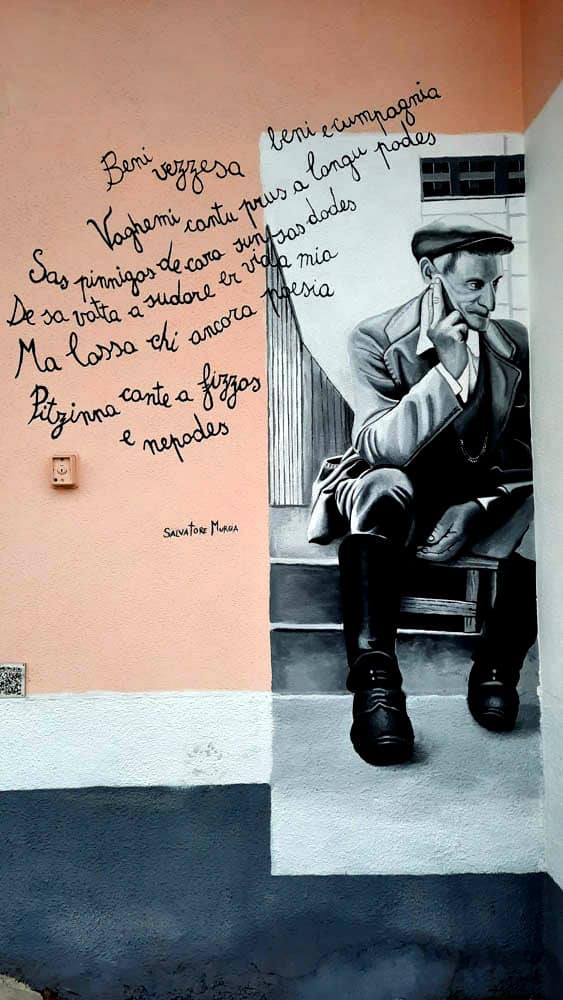 Beni vezzesa beni e cumpagnia
Vaghemi cantu prus a longu podes
Sas pinnigas de cara sunt sas dodes
De sa vatta a sudore er vida mia
Ma lassa chi ancora poesia
Pitzinna cante a fizzos
e nepodes
SALVATORE MURGIA